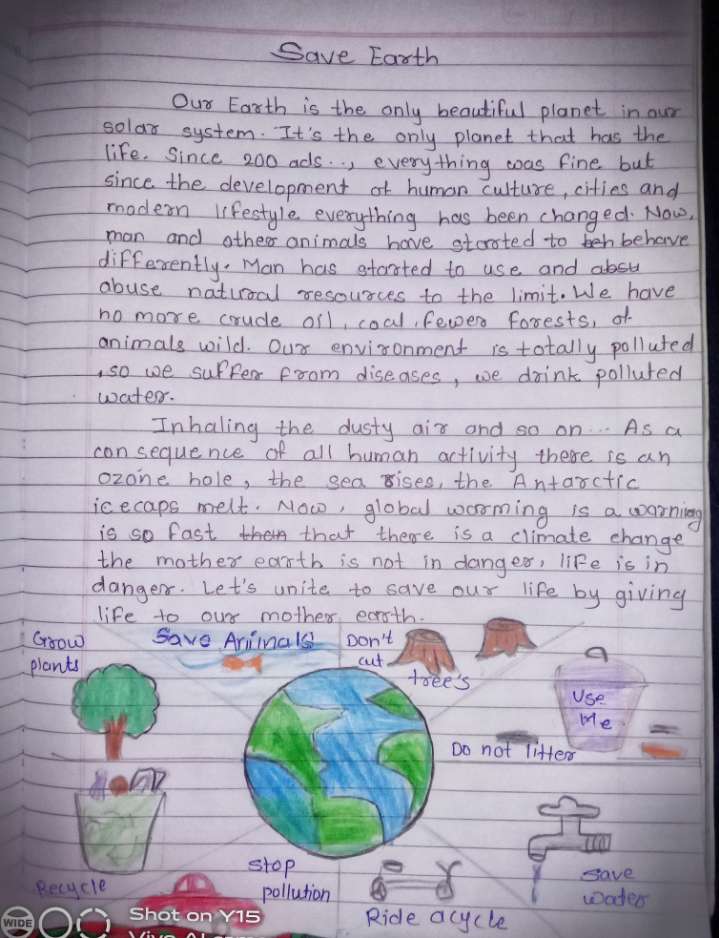 Save Earth
Our Earth is the only beautiful planet in our
solar system. It's the only planet that has the
life. Since 200 ads..., everything was fine but
since the development of human culture, cities and
modern lifestyle everything has been changed. Now,
man and other animals have started to beh behave
differently. Man has started to use and absu
abuse natural resources to the limit. We have
no more crude oil, coal, fewer forests, of
animals wild. Our environment is totally polluted
, so we suffer from diseases, we drink polluted
water.
Inhaling the dusty air and so on... As a
consequence of all human activity there is an
ozone hole, the sea rises, the Antarctic
icecaps melt. Now, global worming is a warning
is so fast then that there is a climate change
the mother earth is not in danger, life is in
danger. Let's unite to save our life by giving
life to our mother earth.
Grow
plants
Save Animals
Don't
cut
tree's
Use
Me
Do not litter
Recycle
Stop
pollution
Ride a cycle
Save
water
WIDE
Shot on Y15